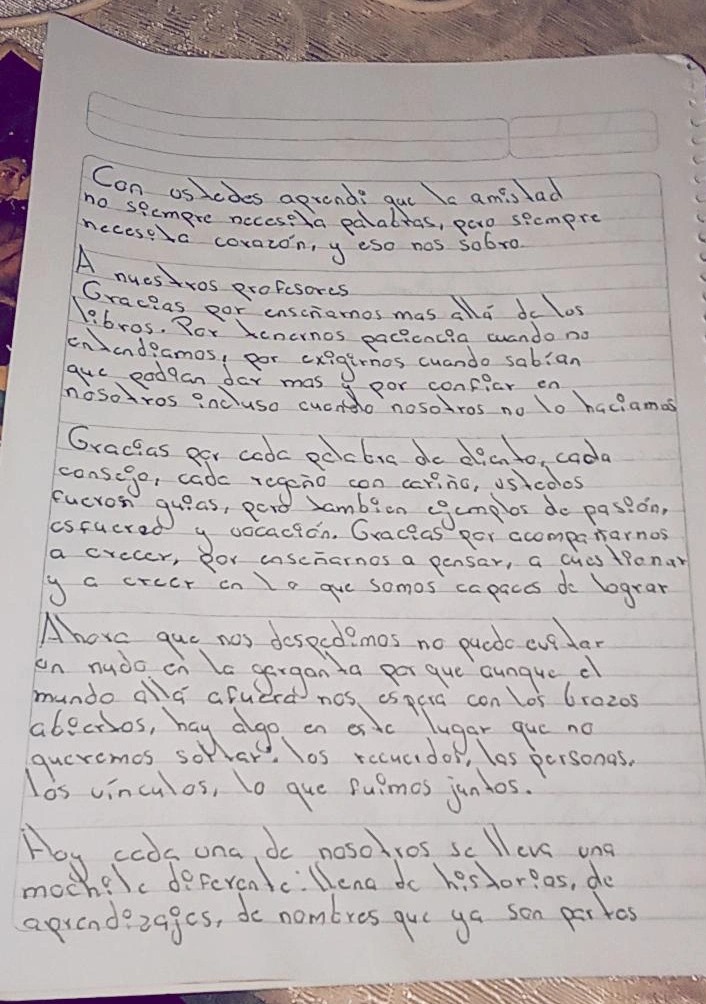 Con ustedes aprendi que la amistad
no siempre necesita palabras, pero siempre
necesita corazón, y eso nos sobro.
A nuestros profesores
Gracias por enseñarnos mas allá de los
libros. Por tenernos paciencia cuando no
entendiamos, por exigirnos cuando sabían
que podian dar mas y por confiar en
nosotros incluso cuando nosotros no lo haciamos
Gracias por cada palabra de aliento, cada
consejo, cada regaño con cariño, ustedes
fueron guias, pero tambien ejemplos de pasión,
esfuerzo y vocación. Gracias por acompañarnos
a crecer, por enseñarnos a pensar, a cuestionar
y a creer en lo que somos capaces de lograr
Ahora que nos despedimos no puedo evitar
un nudo en la garganta por que aunque el
mundo allá afuera nos espera con los brazos
abiertos, hay algo en este lugar que no
queremos soltar: los recuerdos, las personas,
los vínculos, lo que fuimos juntos.
Hoy cada una de nosotros se lleva una
mochila diferente: llena de historias, de
aprendizajes, de nombres que ya son partes